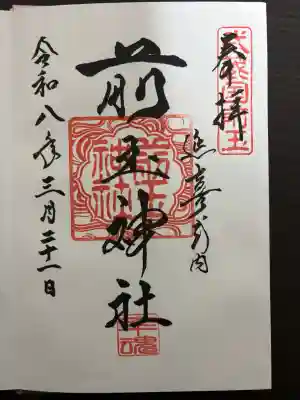 奉拝
延喜式内
前玉神社
令和八年三月二十一日
幸魂